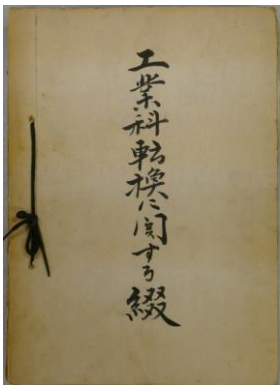 工業科転換に関する綴